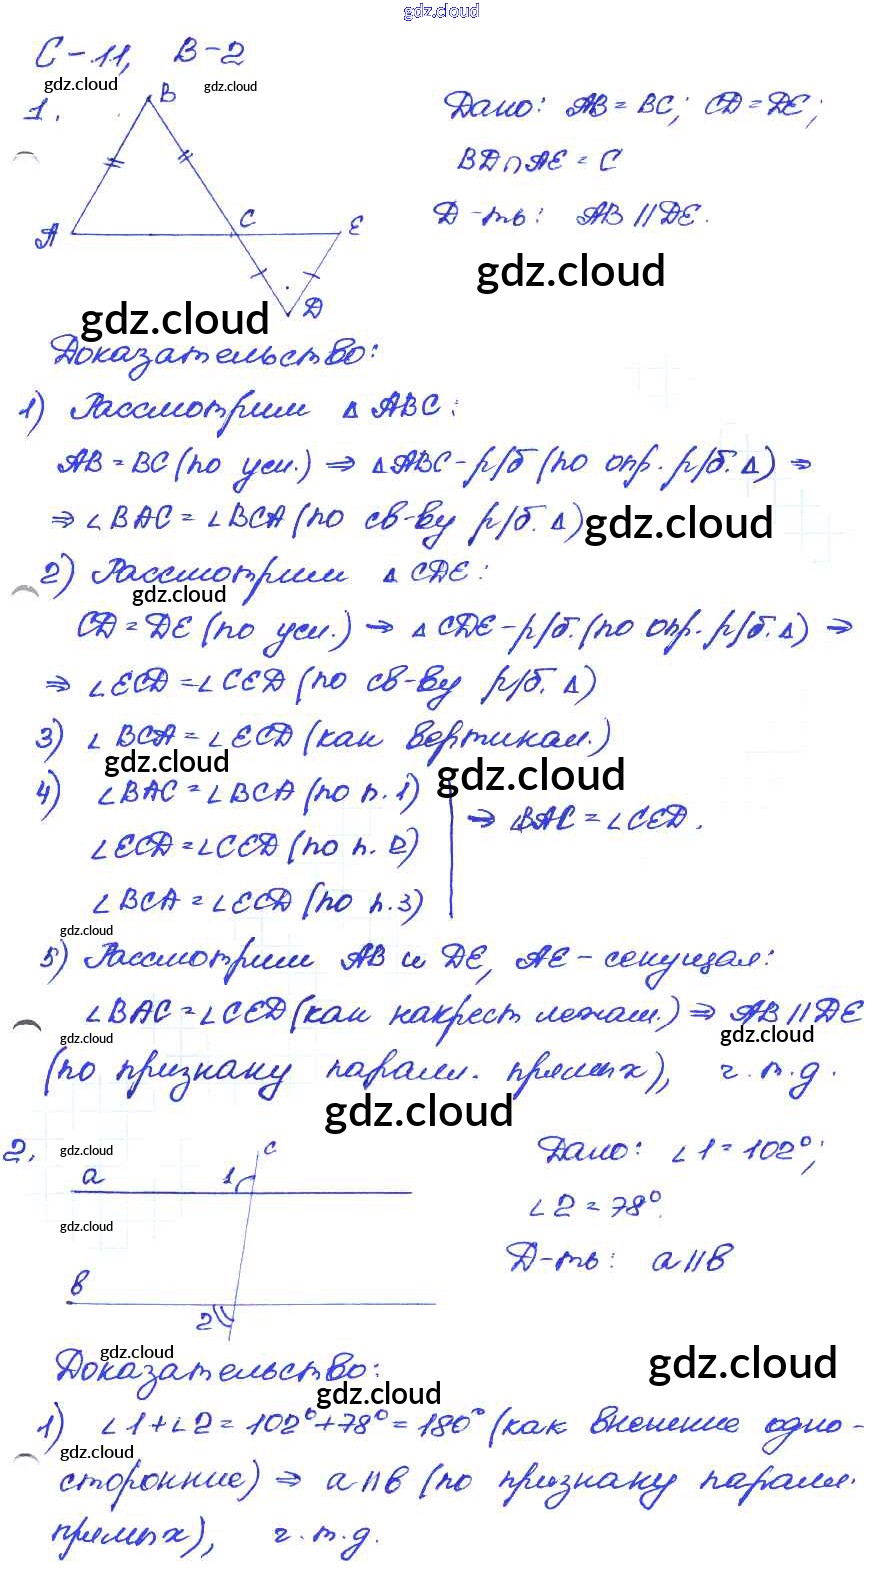 gdz.cloud
С-11, В-2
gdz.cloud gdz.cloud
1.
B
A
C
E
D
Дано: AB = BC; CD = DE;
BD∩AE = C
Д-ть: AB || DE.
gdz.cloud
gdz.cloud
Доказательство:
1) Рассмотрим △ ABC:
AB = BC (по усл.) ⇒ △ABC - р/б (по опр. р/б. △) ⇒
⇒ ∠BAC = ∠BCA (по св-ву р/б. △)
gdz.cloud
2) Рассмотрим △ CDE:
gdz.cloud
CD = DE (по усл.) ⇒ △CDE - р/б. (по опр. р/б. △) ⇒
⇒ ∠ECD = ∠CED (по св-ву р/б. △)
3) ∠BCA = ∠ECD (как вертикал.)
gdz.cloud gdz.cloud
4) ∠BAC = ∠BCA (по п. 1)
∠ECD = ∠CED (по п. 2)
∠BCA = ∠ECD (по п. 3)
⇒ ∠BAC = ∠CED.
gdz.cloud
5) Рассмотрим AB и DE, AE - секущая:
∠BAC = ∠CED (как накрест лежащ.) ⇒ AB || DE
gdz.cloud
(по признаку паралл. прямых), ч.т.д.
gdz.cloud
2.
gdz.cloud
a
1
c
gdz.cloud
b
2
Дано: ∠1 = 102°;
∠2 = 78°.
Д-ть: a || b
gdz.cloud gdz.cloud
Доказательство:
gdz.cloud
1) ∠1 + ∠2 = 102° + 78° = 180° (как внешние одно-
gdz.cloud
сторонние) ⇒ a || b (по признаку паралл.
прямых), ч.т.д.